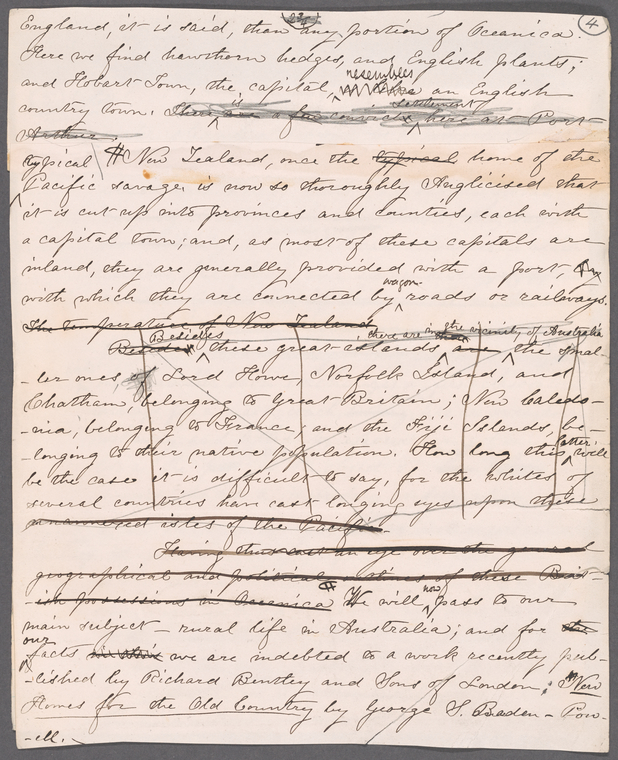 4
England, it is said, than any portion of Oceanica.
Here we find hawthorn hedges, and English plants;
resembles
and Hobart Town, the capital, an English
settlement
country town. There is are a few convicts here at Port
Arthur.
typical ¶ New Zealand, once the typical home of the
Pacific savage, is now so thoroughly Anglicised that
it is cut up into provinces and counties, each with
a capital town; and, as most of these capitals are
inland, they are generally provided with a port,
wagon-
with which they are connected by roads or railways.
The temperature of New Zealand
Besides there are in the vicinity of Australia
Besides these great islands, are the smal-
-ler ones of Lord Howe, Norfolk Island, and
Chatham, belonging to Great Britain; New Caledo-
-nia, belonging to France; and the Fiji Islands, be-
latter
-longing to their native population. How long this will
be the case it is difficult to say, for the whites of
several countries have cast longing eyes upon these
unannexed isles of the Pacific.
Having thus cast an eye over the general
geographical and political outlines of these Brit-
now
-ish possessions in Oceanica We will pass to our
main subject - rural life in Australia; and for the
our
facts we are indebted to a work recently pub-
-lished by Richard Bentley and Sons of London; "New
Homes for the Old Country by George S. Baden-Pow-
-ell.